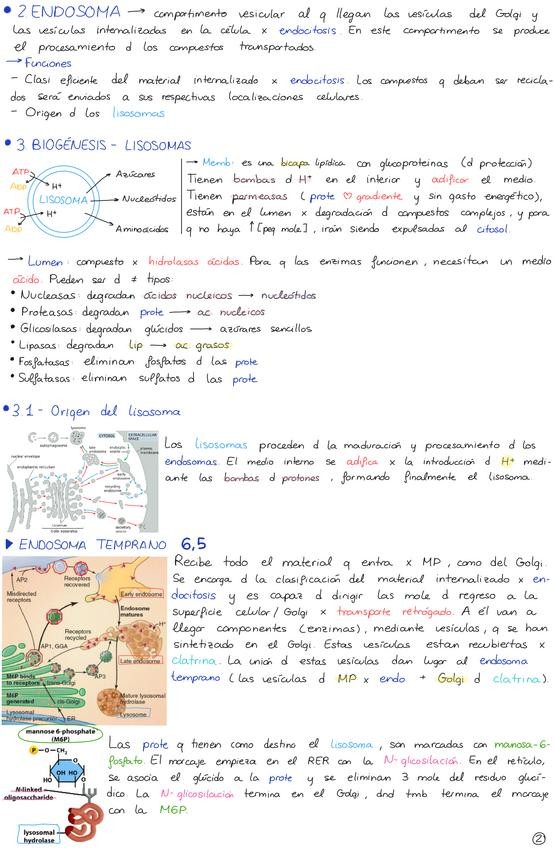 • 2 ENDOSOMA → compartimento vesicular al q llegan las vesículas del Golgi y
las vesículas internalizadas en la célula x endocitosis. En este compartimento se produce
el procesamiento d los compuestos transportados.
→ Funciones
- Clasi eficiente del material internalizado x endocitosis. Los compuestos q deban ser recicla-
dos será enviados a sus respectivas localizaciones celulares.
- Origen d los lisosomas
• 3 BIOGÉNESIS - LISOSOMAS
ATP
ADP
H+
LISOSOMA
ATP
ADP
H+
Azúcares
Nucleótidos
Aminoácidos
→ Memb: es una bicapa lipídica con glucoproteínas (d protección)
Tienen bombas d H+ en el interior y adificar el medio.
Tienen permeasas (prote ♡ gradiente y sin gasto energético),
están en el lumen x degradación d compuestos complejos, y para
q no haya ↑[peq mole], irán siendo expulsadas al citosol.
→ Lumen: compuesto x hidrolasas ácidas. Para q las enzimas funcionen, necesitan un medio
ácido. Pueden ser d ≠ tipos:
• Nucleasas: degradan ácidos nucleicos → nucleótidos
• Proteasas: degradan prote → ac. nucleicos
• Glicosilasas: degradan glúcidos → azúrares sencillos
• Lipasas: degradan lip → ac. grasos
• Fosfatasas: eliminan fosfatos d las prote
• Sulfatasas: eliminan sulfatos d las prote
• 3.1- Origen del lisosoma
lysosome
CYTOSOL
EXTRACELLULAR SPACE
nuclear envelope
endoplasmic reticulum
late endosome
early endosome
plasma membrane
recycling endosome
secretory vesicle
Golgi apparatus
Los lisosomas proceden d la maduración y procesamiento d los
endosomas. El medio interno se adifica x la introducción d H+ medi-
ante las bombas d protones, formando finalmente el lisosoma.
▶ ENDOSOMA TEMPRANO 6,5
AP2
Receptors recovered
Early endosome
Misdirected receptors
Endosome matures
H+
Receptors recycled
AP1, GGA
Late endosome
AP3
M6P binds to receptors
trans-Golgi
M6P generated
cis-Golgi
Mature lysosomal hydrolase
Lysosomal hydrolase precursor
ER
Lysosome
Recibe todo el material q entra x MP, como del Golgi.
Se encarga d la clasificación del material internalizado x en-
docitosis y es capaz d dirigir las mole d regreso a la
superficie celular/Golgi x transporte retrógado. A él van a
llegar componentes (enzimas), mediante vesículas, q se han
sintetizado en el Golgi. Estas vesículas estan recubiertas x
clatrina. La unión d estas vesículas dan lugar al endosoma
temprano (las vesículas d MP x endo + Golgi d clatrina).
mannose 6-phosphate
(M6P)
P-O-CH2
O
OH HO
HO
N-linked
oligosaccharide
lysosomal
hydrolase
Las prote q tienen como destino el lisosoma, son marcadas con manosa-6-
fosfato. El marcaje empieza en el RER con la N-glicosilación. En el retículo,
se asocia el glúcido a la prote y se eliminan 3 mole del residuo glucí-
dico. La N-glicosilación termina en el Golgi, dnd tmb termina el marcaje
con la M6P.
2